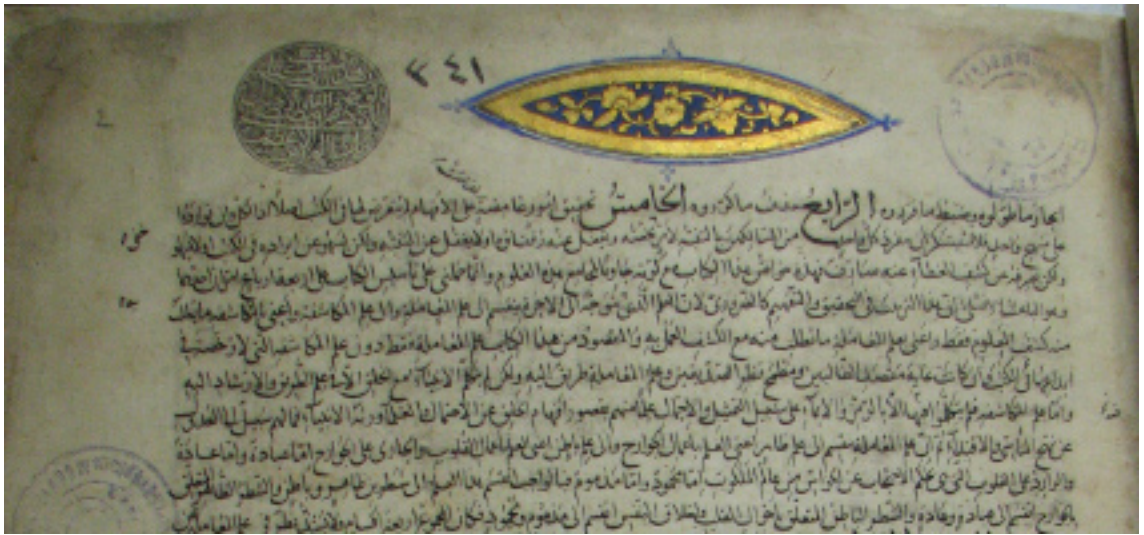 ٣٤١
ايجاز ما طولوه وضبط ما قرروه الرابع حذف ما كرروه الخامس تحقيق امور غامضة على الافهام لم يتعرض لها في الكتب اصلا اذ الكل وان تواردوا
على منهج واحد فلا مستنكر ان يتفرد كل واحد من السالكين بالتنبيه لامر يخصه ويغفل عنه رفقاؤه او لا يغفل عن التنبيه ولكن يسهو عن ايراده في الكتب او لا يسهو
ولكن يصرفه عن كشف الغطاء عنه صارف فهذه خواص هذا الكتاب مع كونه حاويا لمجامع هذه العلوم وانما حملني على تاسيس الكتاب على اربعة ارباع امران احدهما
وهو الباعث الاصلي ان هذا الترتيب في التحقيق والتفهيم كالضروري لان العلم الذي يتوجه به الى الاخرة ينقسم الى علم المعاملة والى علم المكاشفة واعني بالمكاشفة ما يطلب
منه كشف المعلوم فقط واعني بعلم المعاملة ما يطلب منه مع الكشف العمل به والمقصود من هذا الكتاب علم المعاملة فقط دون علم المكاشفة التي لا رخصة في
ايداعها في الكتب وان كانت غاية مقصد الطالبين ومطمح نظر الصديقين وعلم المعاملة طريق اليه ولكن لم يتكلم الانبياء مع الخلق الا في علم الطريق والارشاد اليه
واما علم المكاشفة فلم يتكلموا فيه الا بالرمز والايماء على سبيل التمثيل والاجمال علما منهم بقصور افهام الخلق عن الاحتمال والعلماء ورثة الانبياء فما لهم سبيل الى العدول
عن نهج التاسي والاقتداء ثم ان علم المعاملة ينقسم الى علم ظاهر اعني العلم باعمال الجوارح والى علم باطن اعني العلم باعمال القلوب والجاري على الجوارح اما عبادة واما عادة
والوارد على القلوب التي هي بحكم الاحتجاب عن الحواس من عالم الملكوت اما محمود واما مذموم فبالواجب انقسم هذا العلم الى شطرين ظاهر وباطن والشطر الظاهر المتعلق
بالجوارح انقسم الى عبادة وعادة والشطر الباطن المتعلق باحوال القلب واخلاق النفس انقسم الى مذموم ومحمود فكان المجموع اربعة اقسام ولا يشذ نظر في علم المعاملة عن